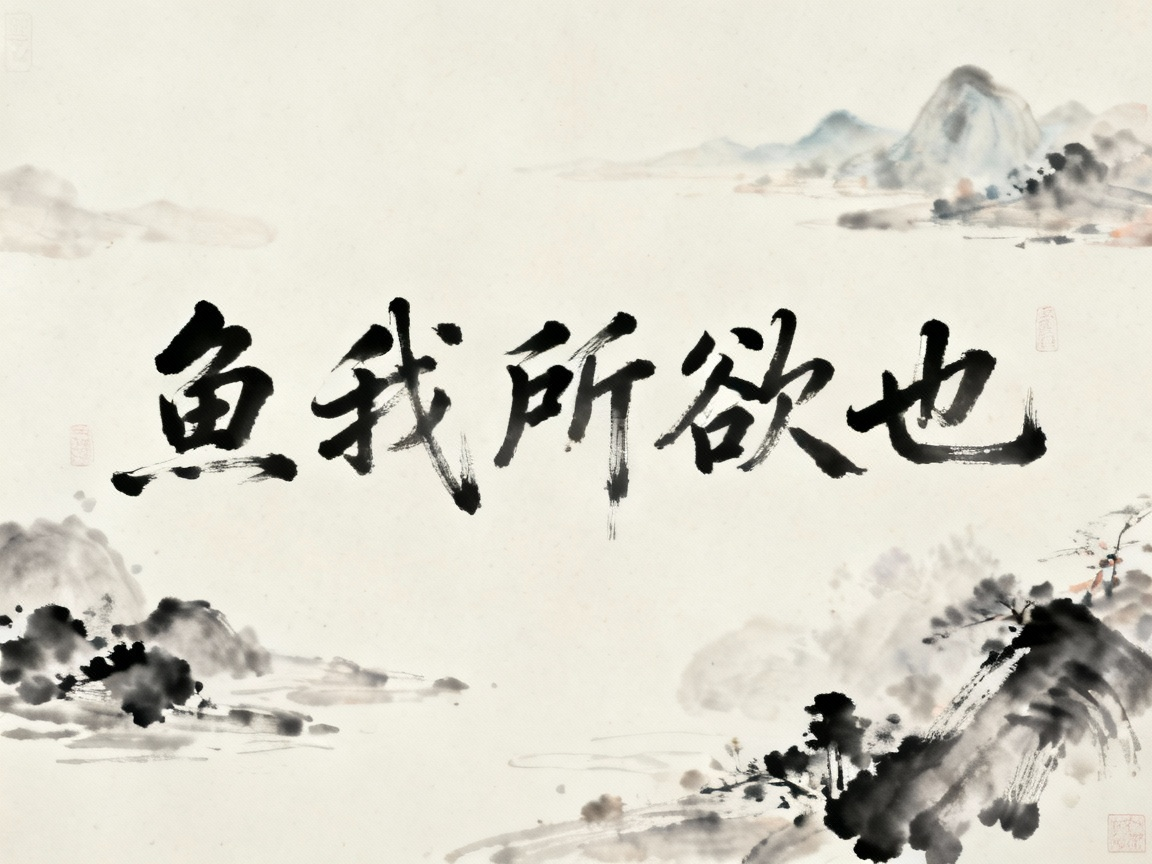 鱼我所欲也